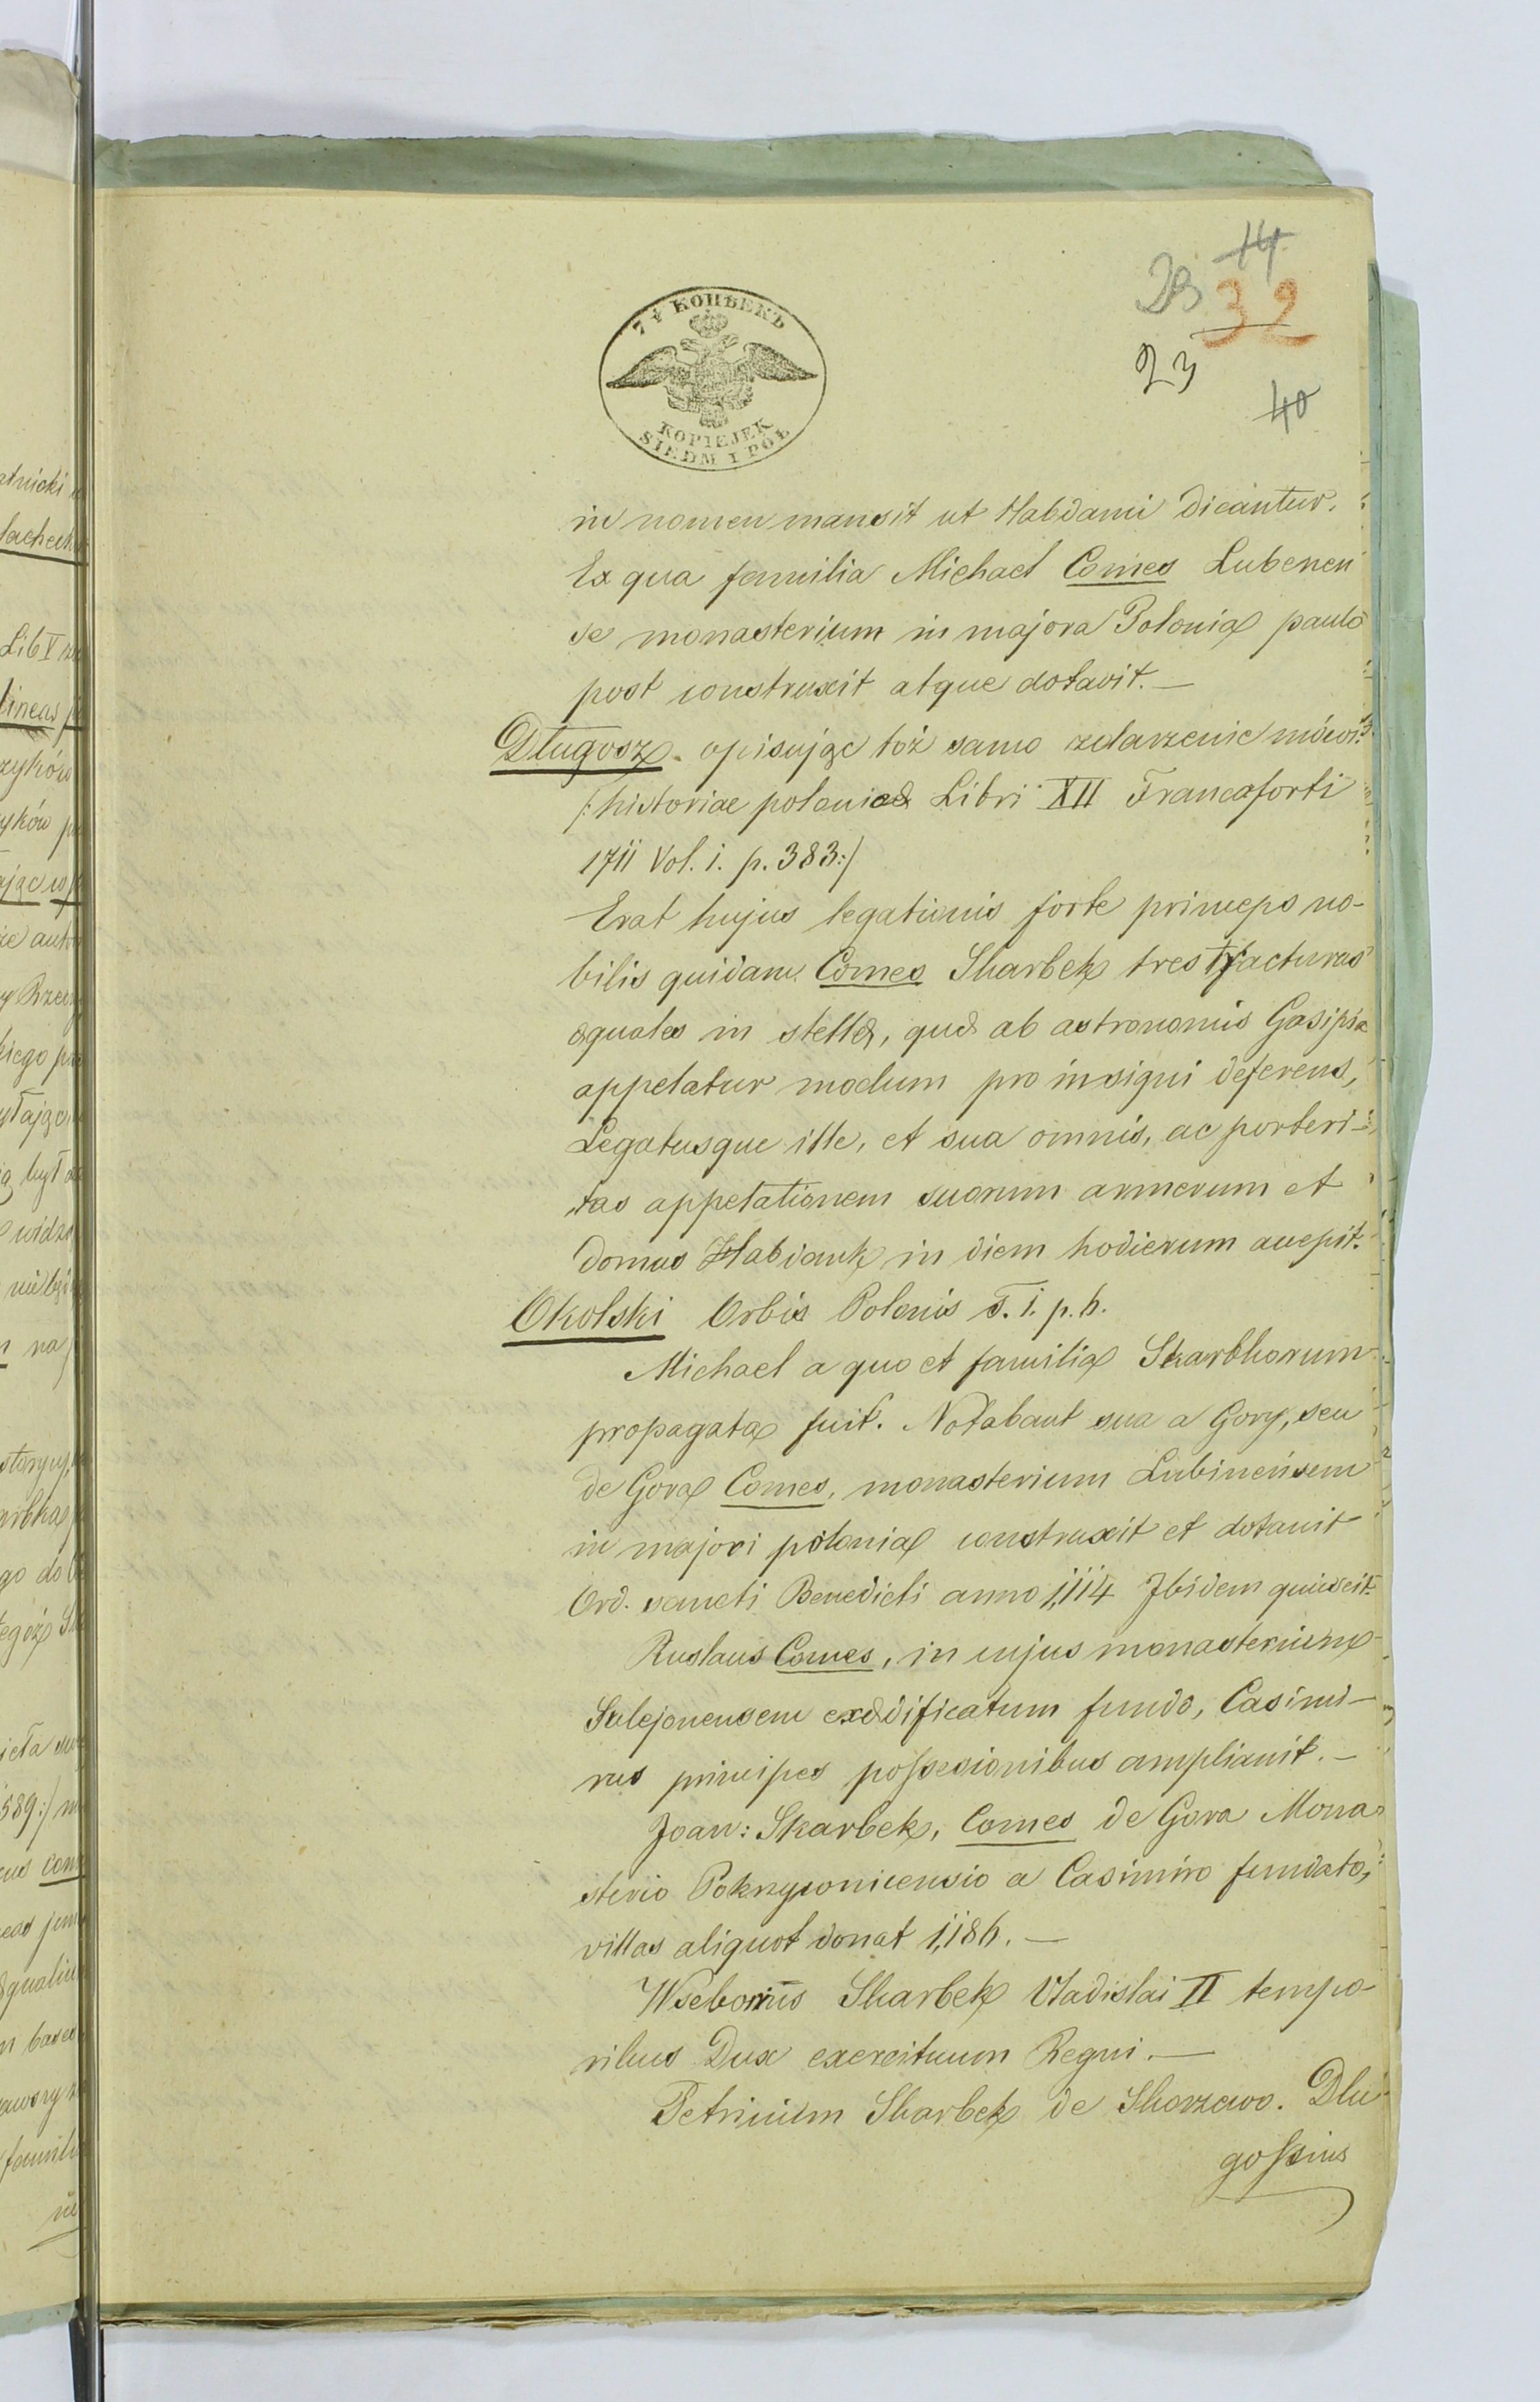 14
23 32
23
40
7½ КОПѢЕКЪ
KOPIEJEK
SIEDM I PÓŁ
in nomen mansit ut Habdani dicantur.
Ex qua familia Michael Comes Lubenen
se monasterium in majora Polonia paulo
post construxit atque dotavit. —
Długosz opisując toż samo zdarzenie mówi:
/:historiae polonicæ Libri XII Francoforti
1711 Vol. i. p. 383:/
Erat hujus legationis forte princeps no-
bilis quidam Comes Skarbek tres tracturas
æquales in stella, quæ ab astronomis Gasipia
appelatur modum pro insigni deferens,
Legatusque ille, et sua omnis, ac posteri-
tas appelationem suorum armorum et
domus Habdank in diem hodierum accepit.
Okolski Orbis Polonis T. i. p. 6.
Michael a quo et familia Skarbkorum
propagata fuit. Notabant sua a Gory, seu
de Gora Comes, monasterium Lubinensem
in majori polonia construxit et dotauit
Ord. sancti Benedicti anno 1,114 Jbidem quiescit.
Ruslaus Comes, in cujus monasterium
Sulejonensem exædificatum fundo, Casimi-
rus principes possesionibus ampliauit. —
Joan: Skarbek, Comes de Gora Mona-
sterio Pokrzywnicensio a Casimiro fundato,
villas aliquot donat 1,186. —
Wseborius Skarbek Vladislai II tempo-
ribus Dux exercituum Regni. —
Petrinium Skarbek de Skorzewo. Dłu
gossius
atnicki
lachech
Lib V
lineas
zyków
yków
ając
że aut
y Rzec
kiego
był
widzo
na
arbka
go do
tegoż
589:/
com
famili